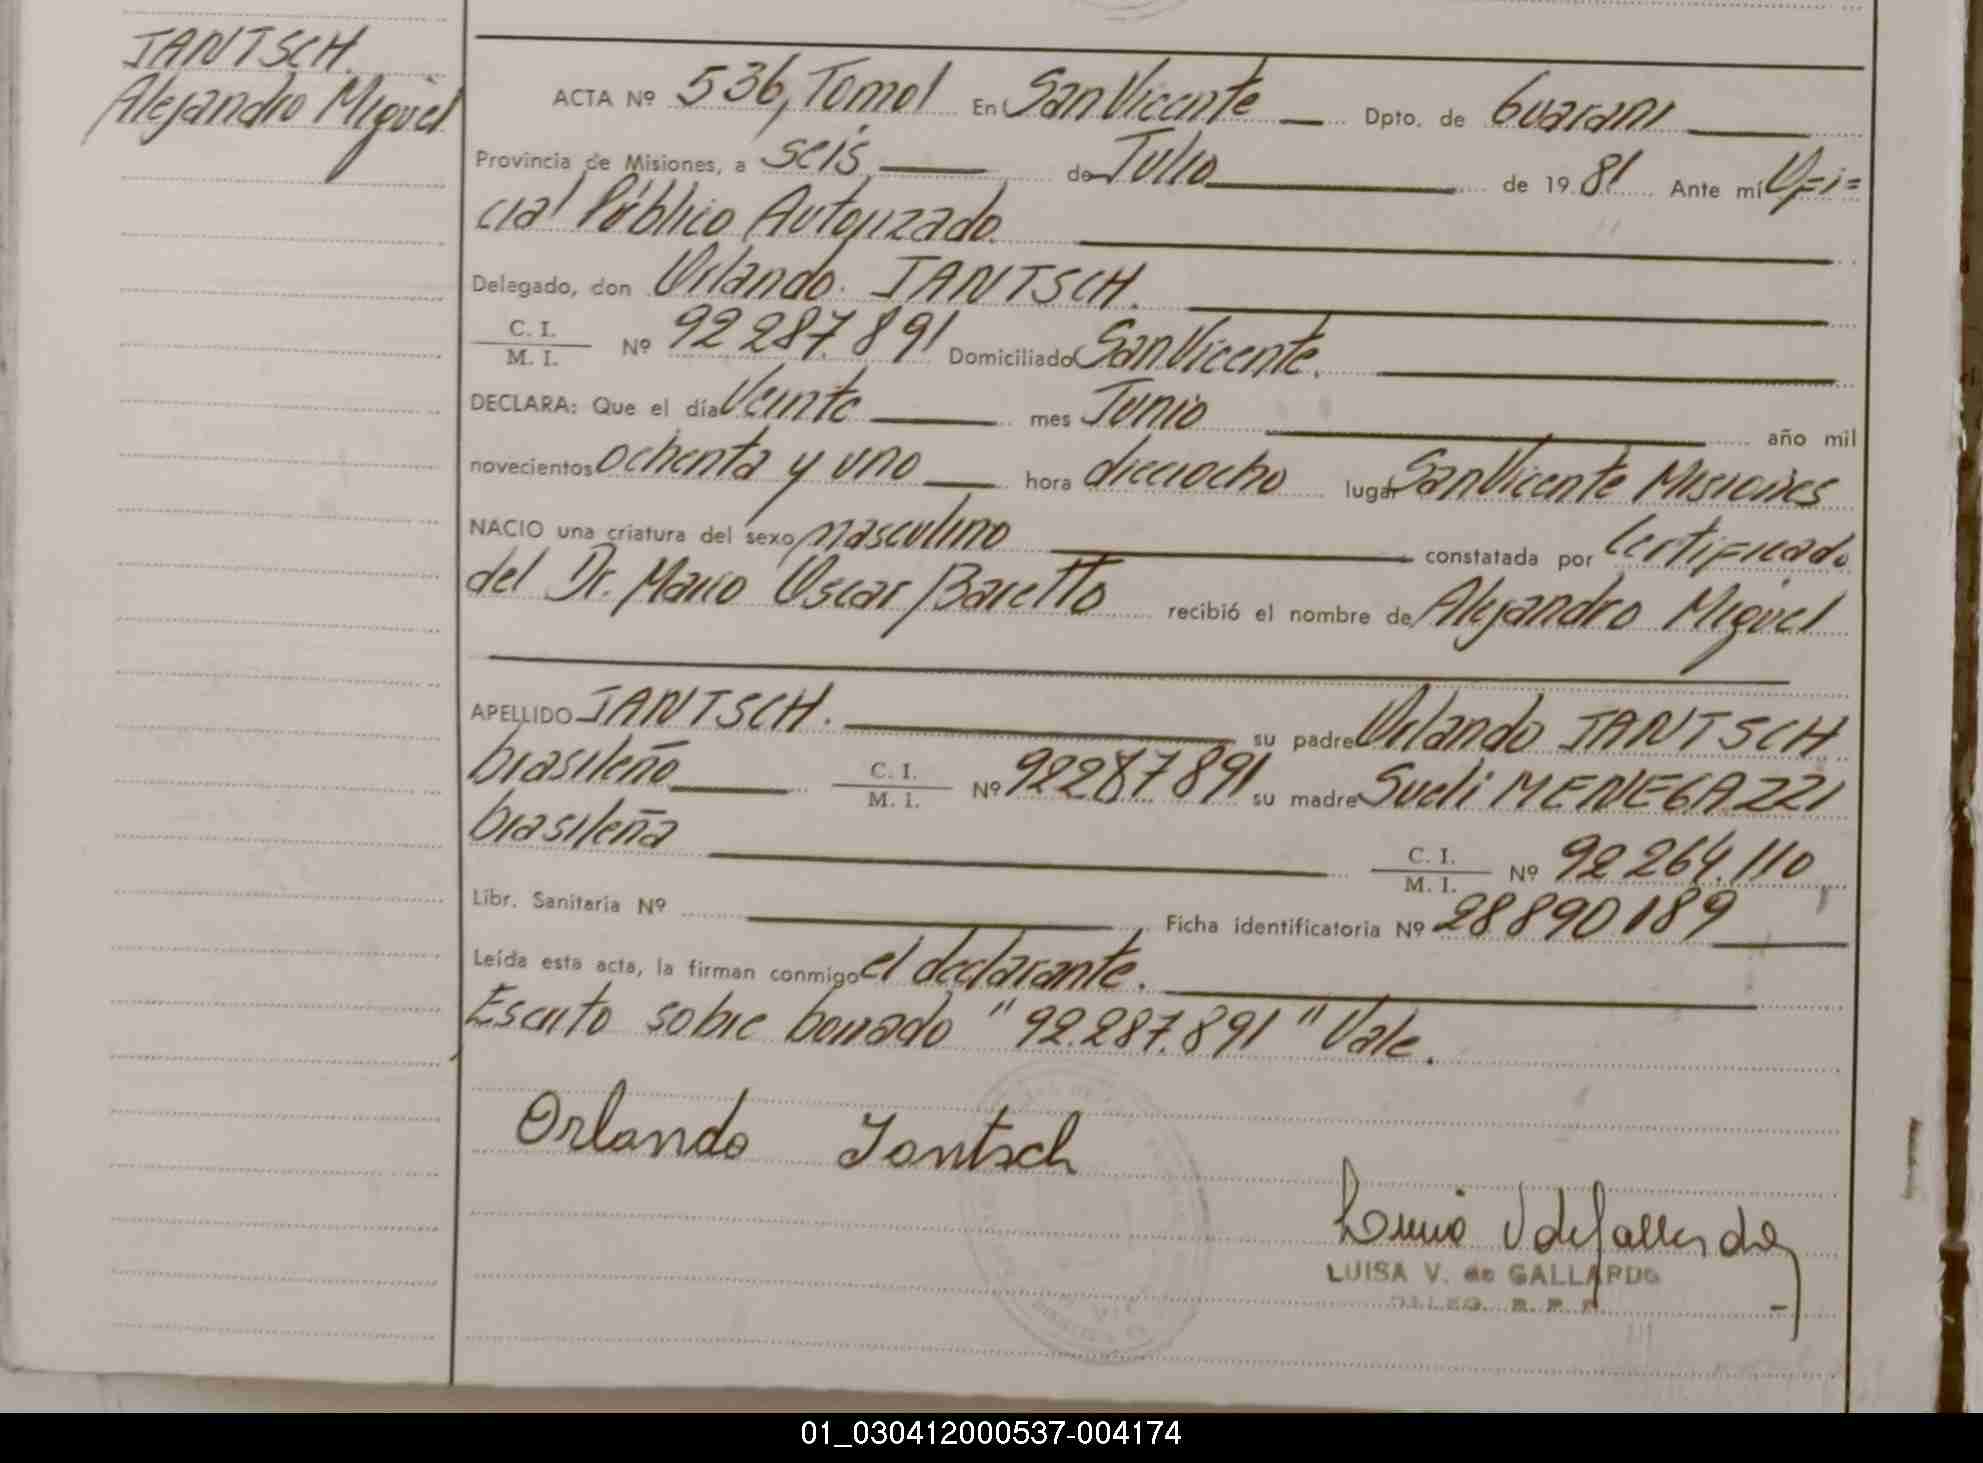 JANTSCH.
Alejandro Miguel
ACTA Nº 536, Tomo I En San Vicente Dpto. de Guarani
Provincia de Misiones, a seis de Julio de 1981 Ante mí Ofi=
cial Público Autorizado.
Delegado, don Orlando. JANTSCH.
C. I.
M. I. Nº 92 287.891 Domiciliado San Vicente.
DECLARA: Que el día Veinte mes Junio año mil
novecientos ochenta y uno hora dieciocho lugar San Vicente Misiones
NACIO una criatura del sexo masculino constatada por Certificado
del Dr. Mario Oscar Baretto recibió el nombre de Alejandro Miguel
APELLIDO JANTSCH. su padre Orlando JANTSCH
brasileño C. I.
M. I. Nº 92287891 su madre Sueli MENEGAZZI
brasileña C. I.
M. I. Nº 92 264.110
Libr. Sanitaria Nº Ficha identificatoria Nº 28890189
Leída esta acta, la firman conmigo el declarante.
Escrito sobre borrado "92.287.891" Vale.
Orlando Jantsch
Luisa V de Gallardo
LUISA V. de GALLARDO
01_030412000537-004174